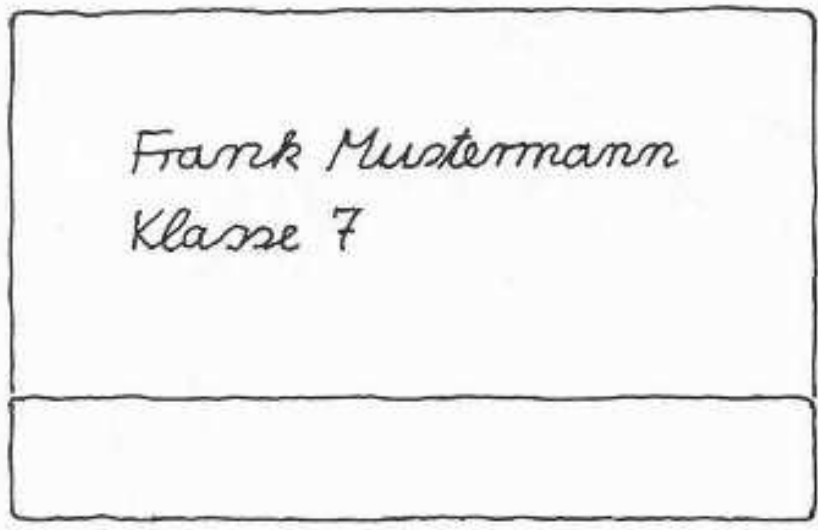 Frank Mustermann
Klasse 7